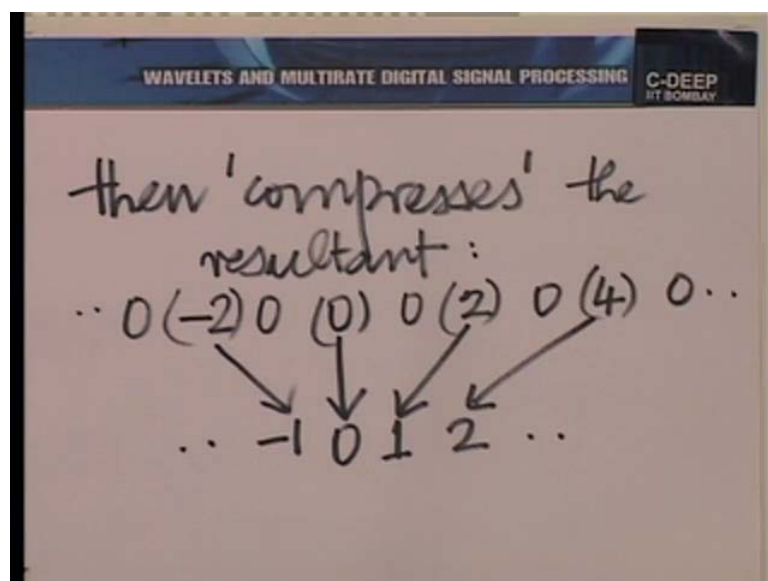 WAVELETS AND MULTIRATE DIGITAL SIGNAL PROCESSING
C-DEEP
IIT BOMBAY
then 'compresses' the
resultant :
.. 0 (-2) 0 (0) 0 (2) 0 (4) 0 ..
.. -1 0 1 2 ..